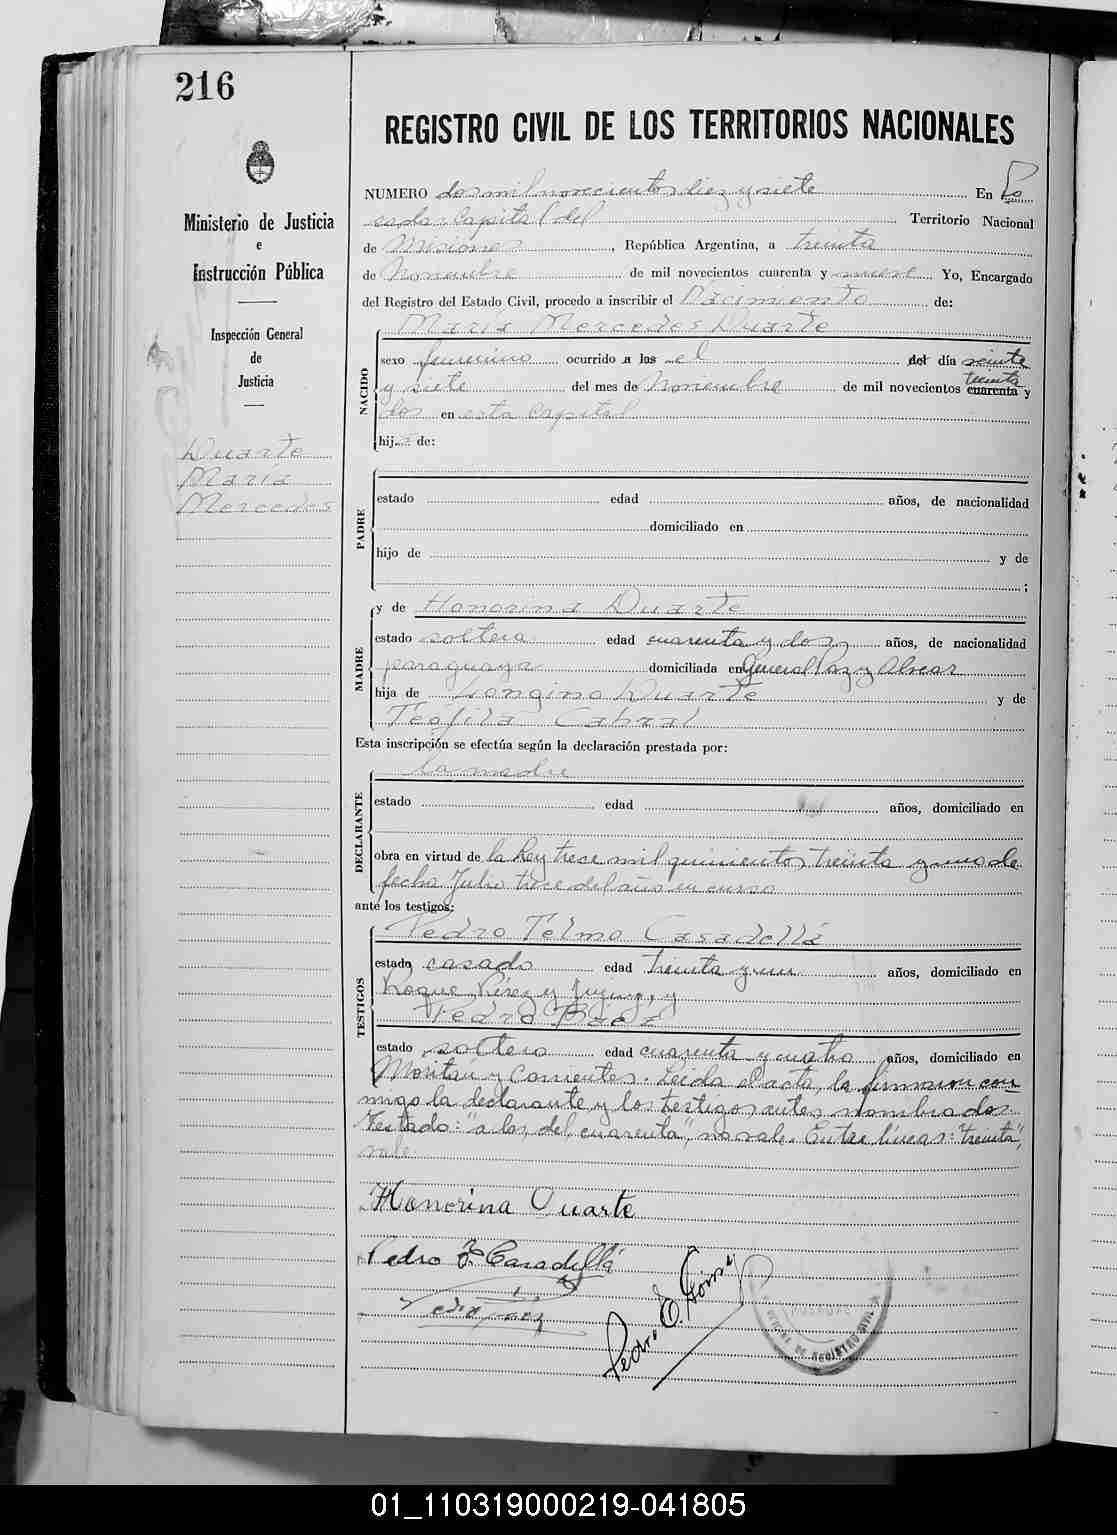 216
Ministerio de Justicia
e
Instrucción Pública
Inspección General
de
Justicia
Duarte
María
Mercedes
REGISTRO CIVIL DE LOS TERRITORIOS NACIONALES
NUMERO dos mil novecientos diez y siete En Po
sadas Capital del Territorio Nacional
de Misiones, República Argentina, a treinta
de Noviembre de mil novecientos cuarenta y nueve Yo, Encargado
del Registro del Estado Civil, procedo a inscribir el Nacimiento de:
NACIDO
María Mercedes Duarte
sexo femenino ocurrido a las el del día veinte
y siete del mes de Noviembre de mil novecientos cuarenta treinta y
dos en esta capital
hij a de:
PADRE
estado edad años, de nacionalidad
domiciliado en
hijo de y de
;
MADRE
y de Honorina Duarte
estado soltera edad cuarenta y dos años, de nacionalidad
paraguaya domiciliada en General Paz y Alvear
hija de Longino Duarte y de
Teófila Cabral
Esta inscripción se efectúa según la declaración prestada por:
DECLARANTE
la madre
estado edad años, domiciliado en
obra en virtud de la Ley trece mil quinientos treinta y uno de
fecha Julio trece del año en curso
ante los testigos:
TESTIGOS
Pedro Telmo Casadellá
estado casado edad treinta y un años, domiciliado en
Roque Pérez y Jujuy, y
Pedro Báez
estado soltero edad cuarenta y cuatro años, domiciliado en
y Corrientes. Leida el acta, la firmaron con
migo la declarante y los testigos antes nombrados.
Testado: "a las, del, cuarenta", no vale. Entre líneas: "treinta",
vale
Honorina Duarte
Pedro T. Casadellá
Pedro Báez
Pedro E.
DE REGISTRO CIVIL
01_110319000219-041805